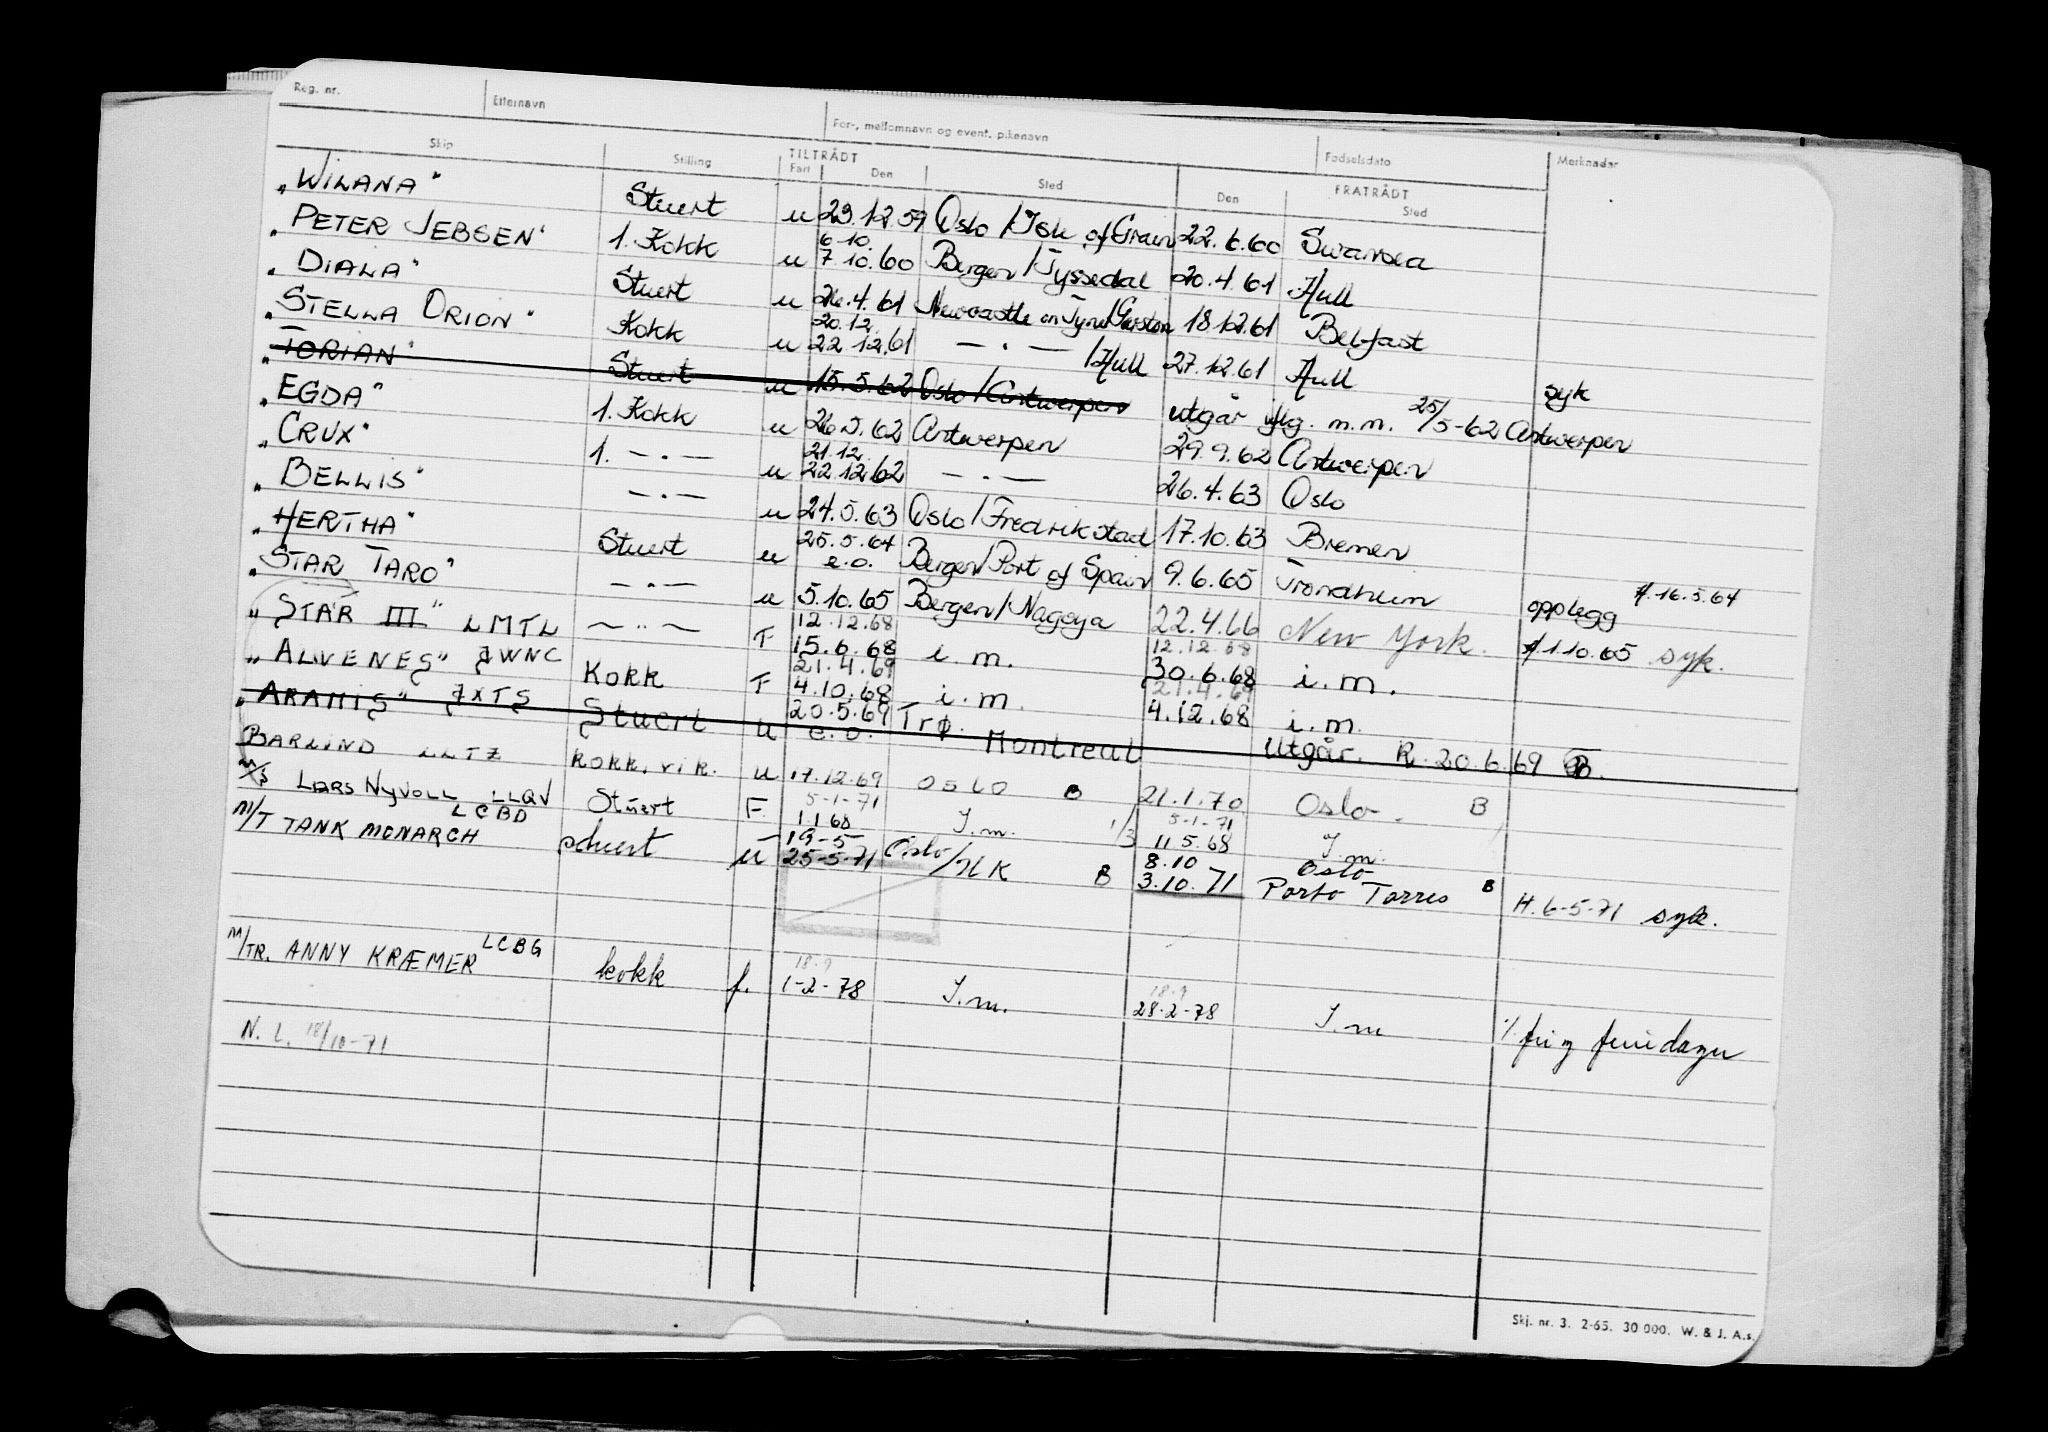 Reg. nr. Etternavn For-, mellomnavn og event. pikenavn Fødselsdato Merknader
Skip Stilling TILTRÅDT Fart Den Sted FRATRÅDT Den Sted
"WILANA" Stuert u 23.12.59 Oslo / Isle of Grain 22.6.60 Swansea
"PETER JEBSEN" 1. Kokk u 6-10. 7.10.60 Bergen / Tyssedal 20.4.61 Hull
"DIALA" Stuert u 26.4.61 Newcastle on Tyne/Garston 18.12.61 Belfast
"STELLA ORION" Kokk u 20.12. 22.12.61 — . — / Hull 27.12.61 Hull syk
"TORIAN" Stuert u 15.5.62 Oslo / Antwerpen utgår iflg. m.m. 25/5-62 Antwerpen
"EGDA" 1. Kokk u 26.5.62 Antwerpen 29.9.62 Antwerpen
"CRUX" 1. — . — u 21.12. 22.12.62 — . — 26.4.63 Oslo
"BELLIS" — . — u 24.5.63 Oslo / Fredrikstad 17.10.63 Bremen
"HERTHA" Stuert u 25.5.64 e.o. Bergen/Port of Spain 9.6.65 Trondheim opplegg A.16.5.64
"STAR TARO" — . — u 5.10.65 Bergen / Nagoya 22.4.66 New York. A 1.10.65 syk.
"STAR III" LMTL — .. — F 12.12.68 15.6.68 i.m. 12.12.68 30.6.68 i.m.
"ALVENES" JWNC Kokk F 21.4.69 4.10.68 i.m. 21.4.69 4.12.68 i.m.
"ARAMIS" JXTS Stuert u 20.5.69 e.o. Trø. Montreal utgår. R. 20.6.69 B.
BARLIND LLTZ kokk.vik. u 17.12.69 OSLO B 21.1.70 Oslo. B
M/S LARS NYVOLL LLQV Stuert F 5-1-71 1 1 68 I.m. 1/3 5-1-71 11 5.68 I.m.
M/T TANK MONARCH LCBD stuert u 19-5 25-5-71 Oslo/NK B 8.10 3.10.71 Oslo Porto Torres B H.6-5-71 syk.
M/TR. ANNY KRÆMER LCBG kokk f. 18.9 1-2-78 I.m. 18.9 28.2-78 I.m
N.L. 18/10-71
Skj. nr. 3. 2-65. 30 000. W. & J. A.s.